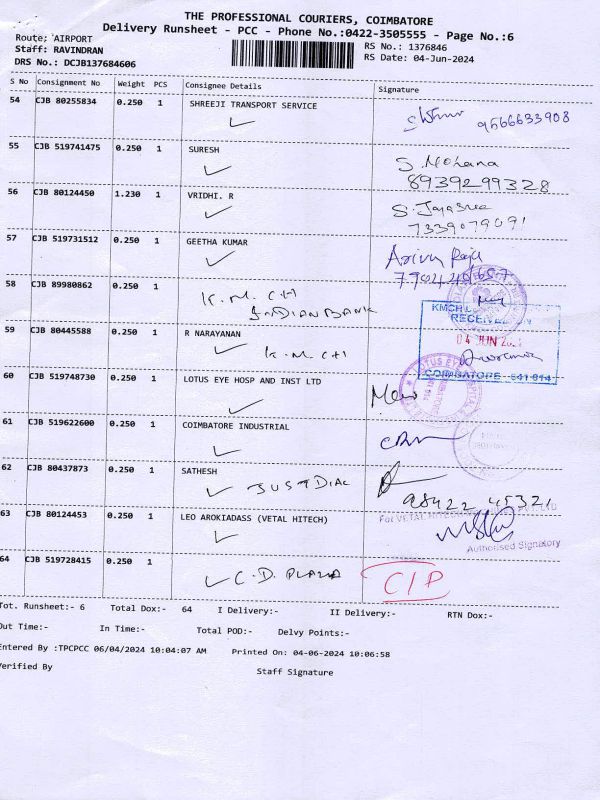 THE PROFESSIONAL COURIERS, COIMBATORE
Delivery Runsheet - PCC - Phone No.:0422-3505555 - Page No.:6
Route; AIRPORT
Staff: RAVINDRAN
DRS No.: DCJB137684606
RS No.: 1376846
RS Date: 04-Jun-2024
S No Consignment No Weight PCS Consignee Details Signature
54 CJB 80255834 0.250 1 SHREEJI TRANSPORT SERVICE
9566633908
55 CJB 519741475 0.250 1 SURESH
S. Mohana
8939299328
56 CJB 80124450 1.230 1 VRIDHI. R
S. Jayasree
7339079091
57 CJB 519731512 0.250 1 GEETHA KUMAR
58 CJB 89980862 0.250 1
K. M. C H
INDIAN BANK
KMCH
59 CJB 80445588 0.250 1 R NARAYANAN
K. M. C H
04 JUN
COIMBATORE - 641 014
60 CJB 519748730 0.250 1 LOTUS EYE HOSP AND INST LTD
LOTUS EYE
61 CJB 519622600 0.250 1 COIMBATORE INDUSTRIAL
62 CJB 80437873 0.250 1 SATHESH
JUSTDIAL
98422 45321
63 CJB 80124453 0.250 1 LEO AROKIADASS (VETAL HITECH)
For VETAL
Authorised Signatory
64 CJB 519728415 0.250 1
C. D. PLAZA
C/P
Tot. Runsheet:- 6 Total Dox:- 64 I Delivery:- II Delivery:- RTN Dox:-
Out Time:- In Time:- Total POD:- Delvy Points:-
Entered By :TPCPCC 06/04/2024 10:04:07 AM Printed On: 04-06-2024 10:06:58
Verified By Staff Signature